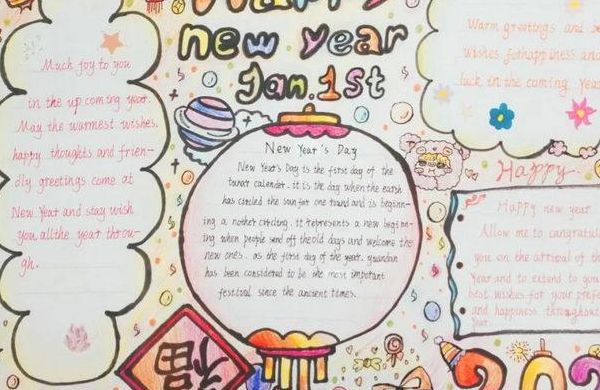 Happy
new year
Jan.1st
Much joy to you
in the up coming year.
May the warmest wishes,
happy thoughts and frien-
dly greetings come at
New Year and stay wish
you all the year throu-
gh.
New Year's Day
New Year's Day is the first day of the
lunar calender. it is the day when the earth
has circled the sun for one round and is beginn-
ing a nother circling. it represents a new begin-
ing when people send off the old days and welcome the
new ones. as the first day of the year. yuandan
has been considered to be the most important
festival since the ancient times.
福
Warm greetings and
wishes for happiness and
luck in the coming year
Happy
Happy new year
Allow me to cangratul
you on the arrival of th
Year and to extend to you
best wishes for your
and happiness throughout
year
202